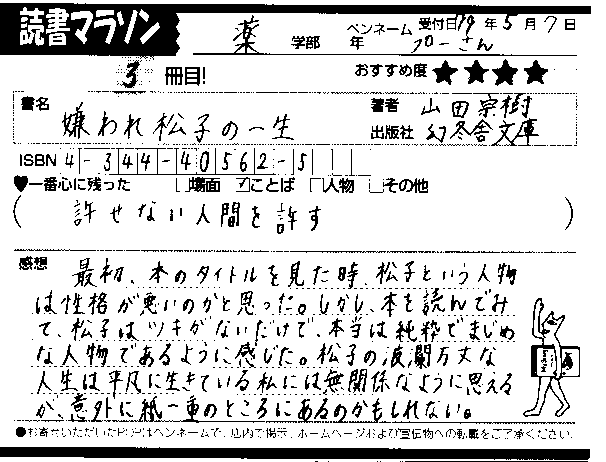 読書マラソン
薬 学部 年 ペンネーム プーさん 受付日 19年5月7日
3 冊目! おすすめ度 ★★★★
書名 嫌われ松子の一生
著者 山田宗樹
出版社 幻冬舎文庫
ISBN 4-344-40562-5
♥一番心に残った □場面 ☑ことば □人物 □その他
(許せない人間を許す)
感想 最初、本のタイトルを見た時、松子という人物
は性格が悪いのかと思った。しかし、本を読んでみ
て、松子はツキがないだけで、本当は純粋でまじめ
な人物であるように感じた。松子の波瀾万丈な
人生は平凡に生きている私には無関係なように思える
が、意外に紙一重のところにあるのかもしれない。
●お寄せいただいたPOPはペンネームで、店内で掲示、ホームページおよび宣伝物への転載をご了承ください。